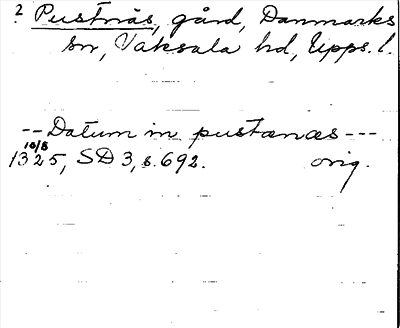 ? Pustnäs, gård, Danmarks
sn, Vaksala hd, Upps. l.
--Datum in pustanæs---
10/8
1325, SD 3, s. 692. orig.